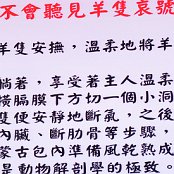 不會聽見羊隻哀號
羊隻安撫，溫柔地將羊
躺著，享受著主人溫柔
橫膈膜下方切一個小洞
隻便安靜地斷氣，之後
內臟、斷肋骨等步驟，
蒙古包內準備風乾熟成
是動物解剖學的極致。